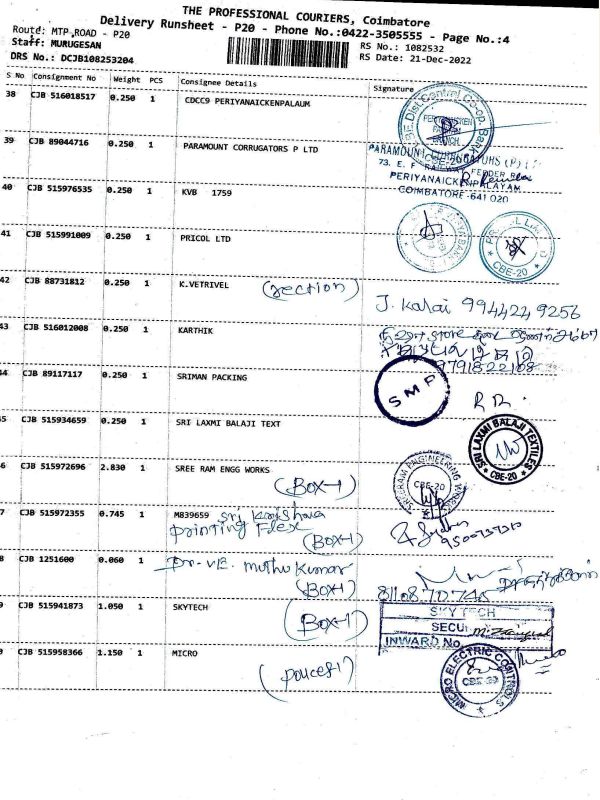 THE PROFESSIONAL COURIERS, Coimbatore
Delivery Runsheet - P20 - Phone No.:0422-3505555 - Page No.:4
Route: MTP ROAD - P20
Staff: MURUGESAN
RS No.: 1082532
DRS No.: DCJB108253204
RS Date: 21-Dec-2022
S No Consignment No Weight PCS Consignee Details Signature
38 CJB 516018517 0.250 1 CDCC9 PERIYANAICKENPALAUM
39 CJB 89044716 0.250 1 PARAMOUNT CORRUGATORS P LTD
PERIYANAICKENPALAYAM
COIMBATORE-641 020
40 CJB 515976535 0.250 1 KVB 1759
41 CJB 515991009 0.250 1 PRICOL LTD
CBE-20
42 CJB 88731812 0.250 1 K.VETRIVEL (section)
J. Kalai 9944249256
43 CJB 516012008 0.250 1 KARTHIK
9791822108
44 CJB 89117117 0.250 1 SRIMAN PACKING
SMP
45 CJB 515934659 0.250 1 SRI LAXMI BALAJI TEXT
SRI LAXMI BALAJI TEXTILES
CBE-20
6 CJB 515972696 2.830 1 SREE RAM ENGG WORKS
(Box-1)
SREERAM ENGINEERING WORKS
CBE-20
7 CJB 515972355 0.745 1 M839659 Sri Krishna
Printing Flex
(Box-1)
8 CJB 1251600 0.060 1 Dr. VE. muthu kumar
(Box-1)
9 CJB 515941873 1.050 1 SKYTECH
(Box-1)
SKYTECH
INWARD No
CJB 515958366 1.150 1 MICRO
(pouces1)
MICRO ELECTRIC CONTROLS